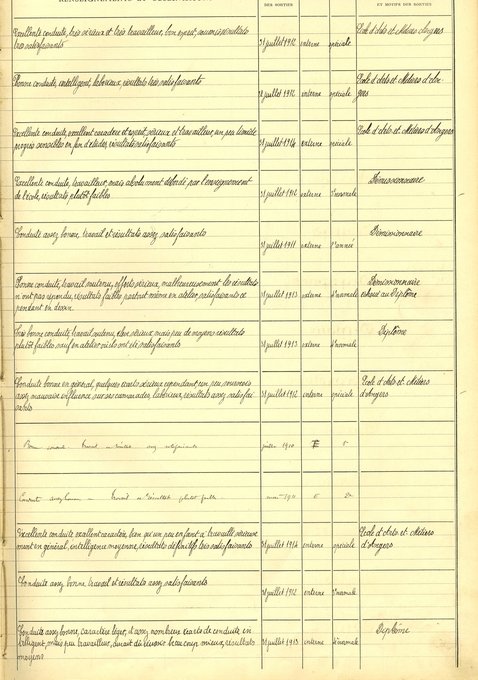 DES SORTIES
ET MOTIFS DES SORTIES
Excellente conduite, très sérieux et très travailleur, bon esprit, aussi résultats
très satisfaisants
31 juillet 1912 interne spéciale
Ecole d'Arts et Métiers Angers
Bonne conduite, intelligent, laborieux, résultats très satisfaisants
31 juillet 1912 interne spéciale
Ecole d'Arts et Métiers d'An-
gers
Excellente conduite, excellent caractère et esprit, sérieux et travailleur, un peu timide
progrès sensibles en fin d'études, résultats satisfaisants
31 juillet 1914 interne spéciale
Ecole d'Arts et Métiers d'Angers
Excellente conduite, travailleur, mais absolument débordé par l'enseignement
de l'école, résultats plutôt faibles
31 juillet 1912 externe 3'normale
Démissionnaire
Conduite assez bonne, travail et résultats assez satisfaisants
31 juillet 1911 externe 1'année
Démissionnaire
Bonne conduite, travail soutenu, efforts sérieux, malheureusement les résultats
n'ont pas répondu, résultats faibles partout même en atelier, satisfaisants ce
pendant en dessin.
31 juillet 1913 externe 3'normale
Démissionnaire
échoué au Diplôme
Très bonne conduite, travail soutenu, élève sérieux mais peu de moyens résultats
plutôt faibles sauf en atelier où ils ont été satisfaisants
31 juillet 1913 externe 3'normale
Diplôme
Conduite bonne en général, quelques écarts sérieux cependant, un peu sournois
assez mauvaise influence sur ses camarades, laborieux, résultats assez satisfai-
sants
31 juillet 1912 interne spéciale
Ecole d'Arts et Métiers
d'Angers
Bonne conduite. Travail et résultats assez satisfaisants
juillet 1910 E
Conduite assez bonne Travail et résultats plutôt faibles
1911
Excellente conduite excellent caractère, bien qu'un peu enfant a travaillé sérieuse
ment en général, intelligence moyenne, résultats définitifs très satisfaisants
31 juillet 1914 interne spéciale
Ecole d'Arts et Métiers
d'Angers
Conduite assez bonne, travail et résultats assez satisfaisants
31 juillet 1912 interne 2'normale
Conduite assez bonne, caractère léger, d'assez nombreux écarts de conduite, in
telligent, mais peu travailleur, aurait dû réussir beaucoup mieux, résultats
moyens
31 juillet 1913 interne 3'normale
Diplôme